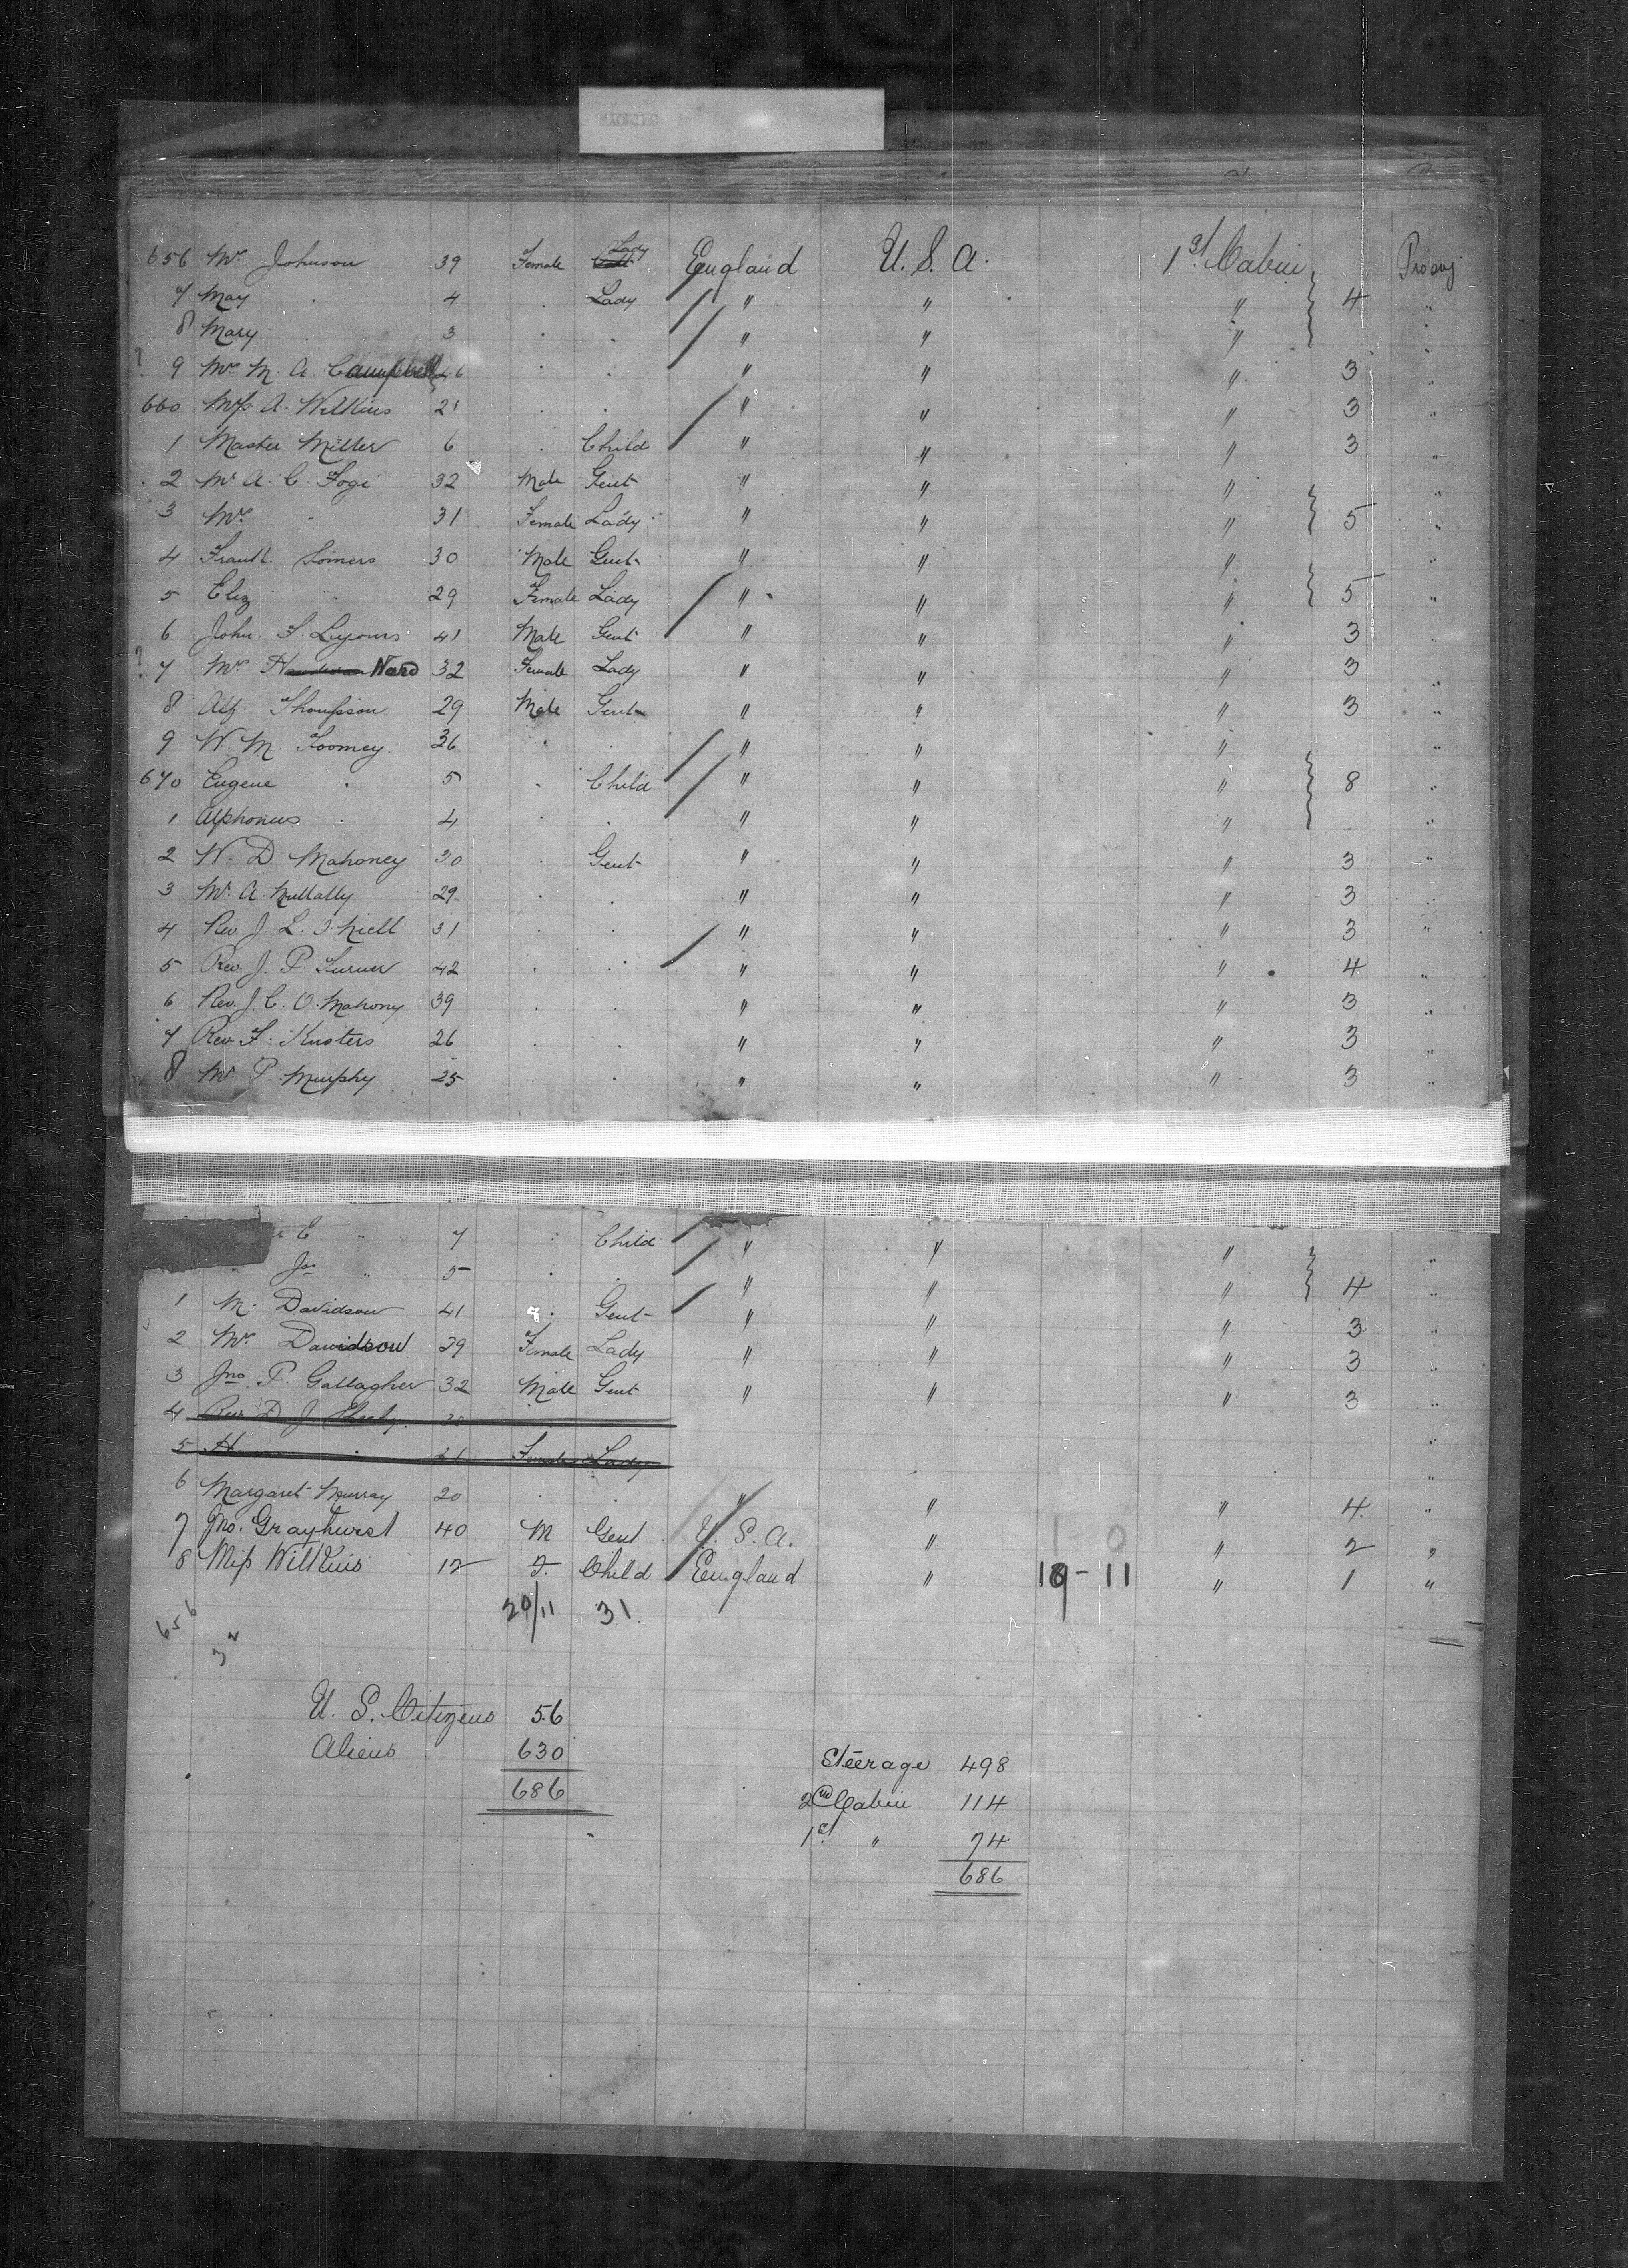 656 Mrs Johnson 39 Female Lady England U. S. A. 1st Cabin
7 May " 4 " Lady " " " 4 "
8 Mary " 3 " " " " " "
? 9 Mrs M. A. Campbell 46 " " " " " 3 "
660 Miss A. Wilkins 21 " " " " " 3 "
1 Master Miller 6 " Child " " " 3 "
2 Mr A. C. 32 Male Gent " " " "
3 Mrs " 31 Female Lady " " " 5 "
4 Somers 30 Male Gent " " " "
5 Eliz " 29 Female Lady " " " 5 "
6 John. S. Lyons 41 Male Gent " " " 3 "
? 7 Mrs Ward 32 Female Lady " " " 3 "
8 Alf. Thompson 29 Male Gent " " " 3 "
9 W. M. Toomey. 36 " " " " " "
670 Eugene " 5 " Child " " " 8 "
1 Alphonsus " 4 " " " " " "
2 W. D Mahoney 30 " Gent " " " 3 "
3 Mr. A. Mullally 29 " " " " " 3 "
4 Rev. J. L. O'Neill 31 " " " " " 3 "
5 Rev. J. P. Turner 42 " " " " " 4 "
6 Rev. J. C. O'Mahony 39 " " " " " 3 "
7 Rev. F. Kusters 26 " " " " " 3 "
8 Mr P. Murphy 25 " " " " " 3 "
E " 7 " Child " " " "
Jas " 5 " " " " " 4 "
1 M. Davidson 41 " Gent " " " 3 "
2 Mrs Davidson 39 Female Lady " " " 3 "
3 Jno P. Gallagher 32 Male Gent " " " 3 "
4 Rev D J 30 "
5 H " 21 Female Lady "
6 Margaret Murray 20 " " " " " 4 "
7 Jno. Grayhurst 40 M Gent U. S. A. " 1 0 " 2 "
8 Miss Wilkins 12 F. Child England " 19-11 " 1 "
20/11 31.
656
32
U. S. Citizens 56
Aliens 630
686
Steerage 498
2nd Cabin 114
1st " 74
686